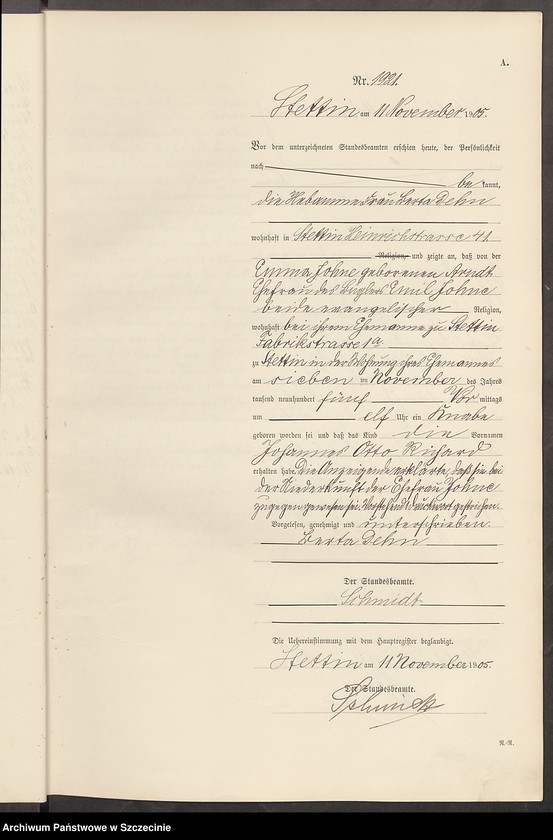 A.
Nr. 1921.
Stettin am 11 November 1905.
Vor dem unterzeichneten Standesbeamten erschien heute, der Persönlichkeit
nach
be kannt,
die Hebamme Frau Berta Dehn
wohnhaft in Stettin Heinrichstrasse 41
Religion, und zeigte an, daß von der
Emma Johne geborenen Arndt
Ehefrau des Büglers Emil Johne
beide evangelischer Religion,
wohnhaft bei ihrem Ehemanne zu Stettin
Fabrikstrasse 1a
zu Stettin in der Wohnung ihres Ehemannes
am sieben ten November des Jahres
tausend neunhundert fünf Vor mittags
um elf Uhr ein Knabe
geboren worden sei und daß das Kind die Vornamen
Johannes Otto Richard
erhalten habe. Die Anzeigende erklärte, daß sie bei
der Niederkunft der Ehefrau Johne
zugegen gewesen sei. Vorstehend 1 Druckwort gestrichen.
Vorgelesen, genehmigt und unterschrieben
Berta Dehn
Der Standesbeamte.
Schmidt
Die Uebereinstimmung mit dem Hauptregister beglaubigt.
Stettin am 11 November 1905.
Der Standesbeamte.
Schmidt
Archiwum Państwowe w Szczecinie